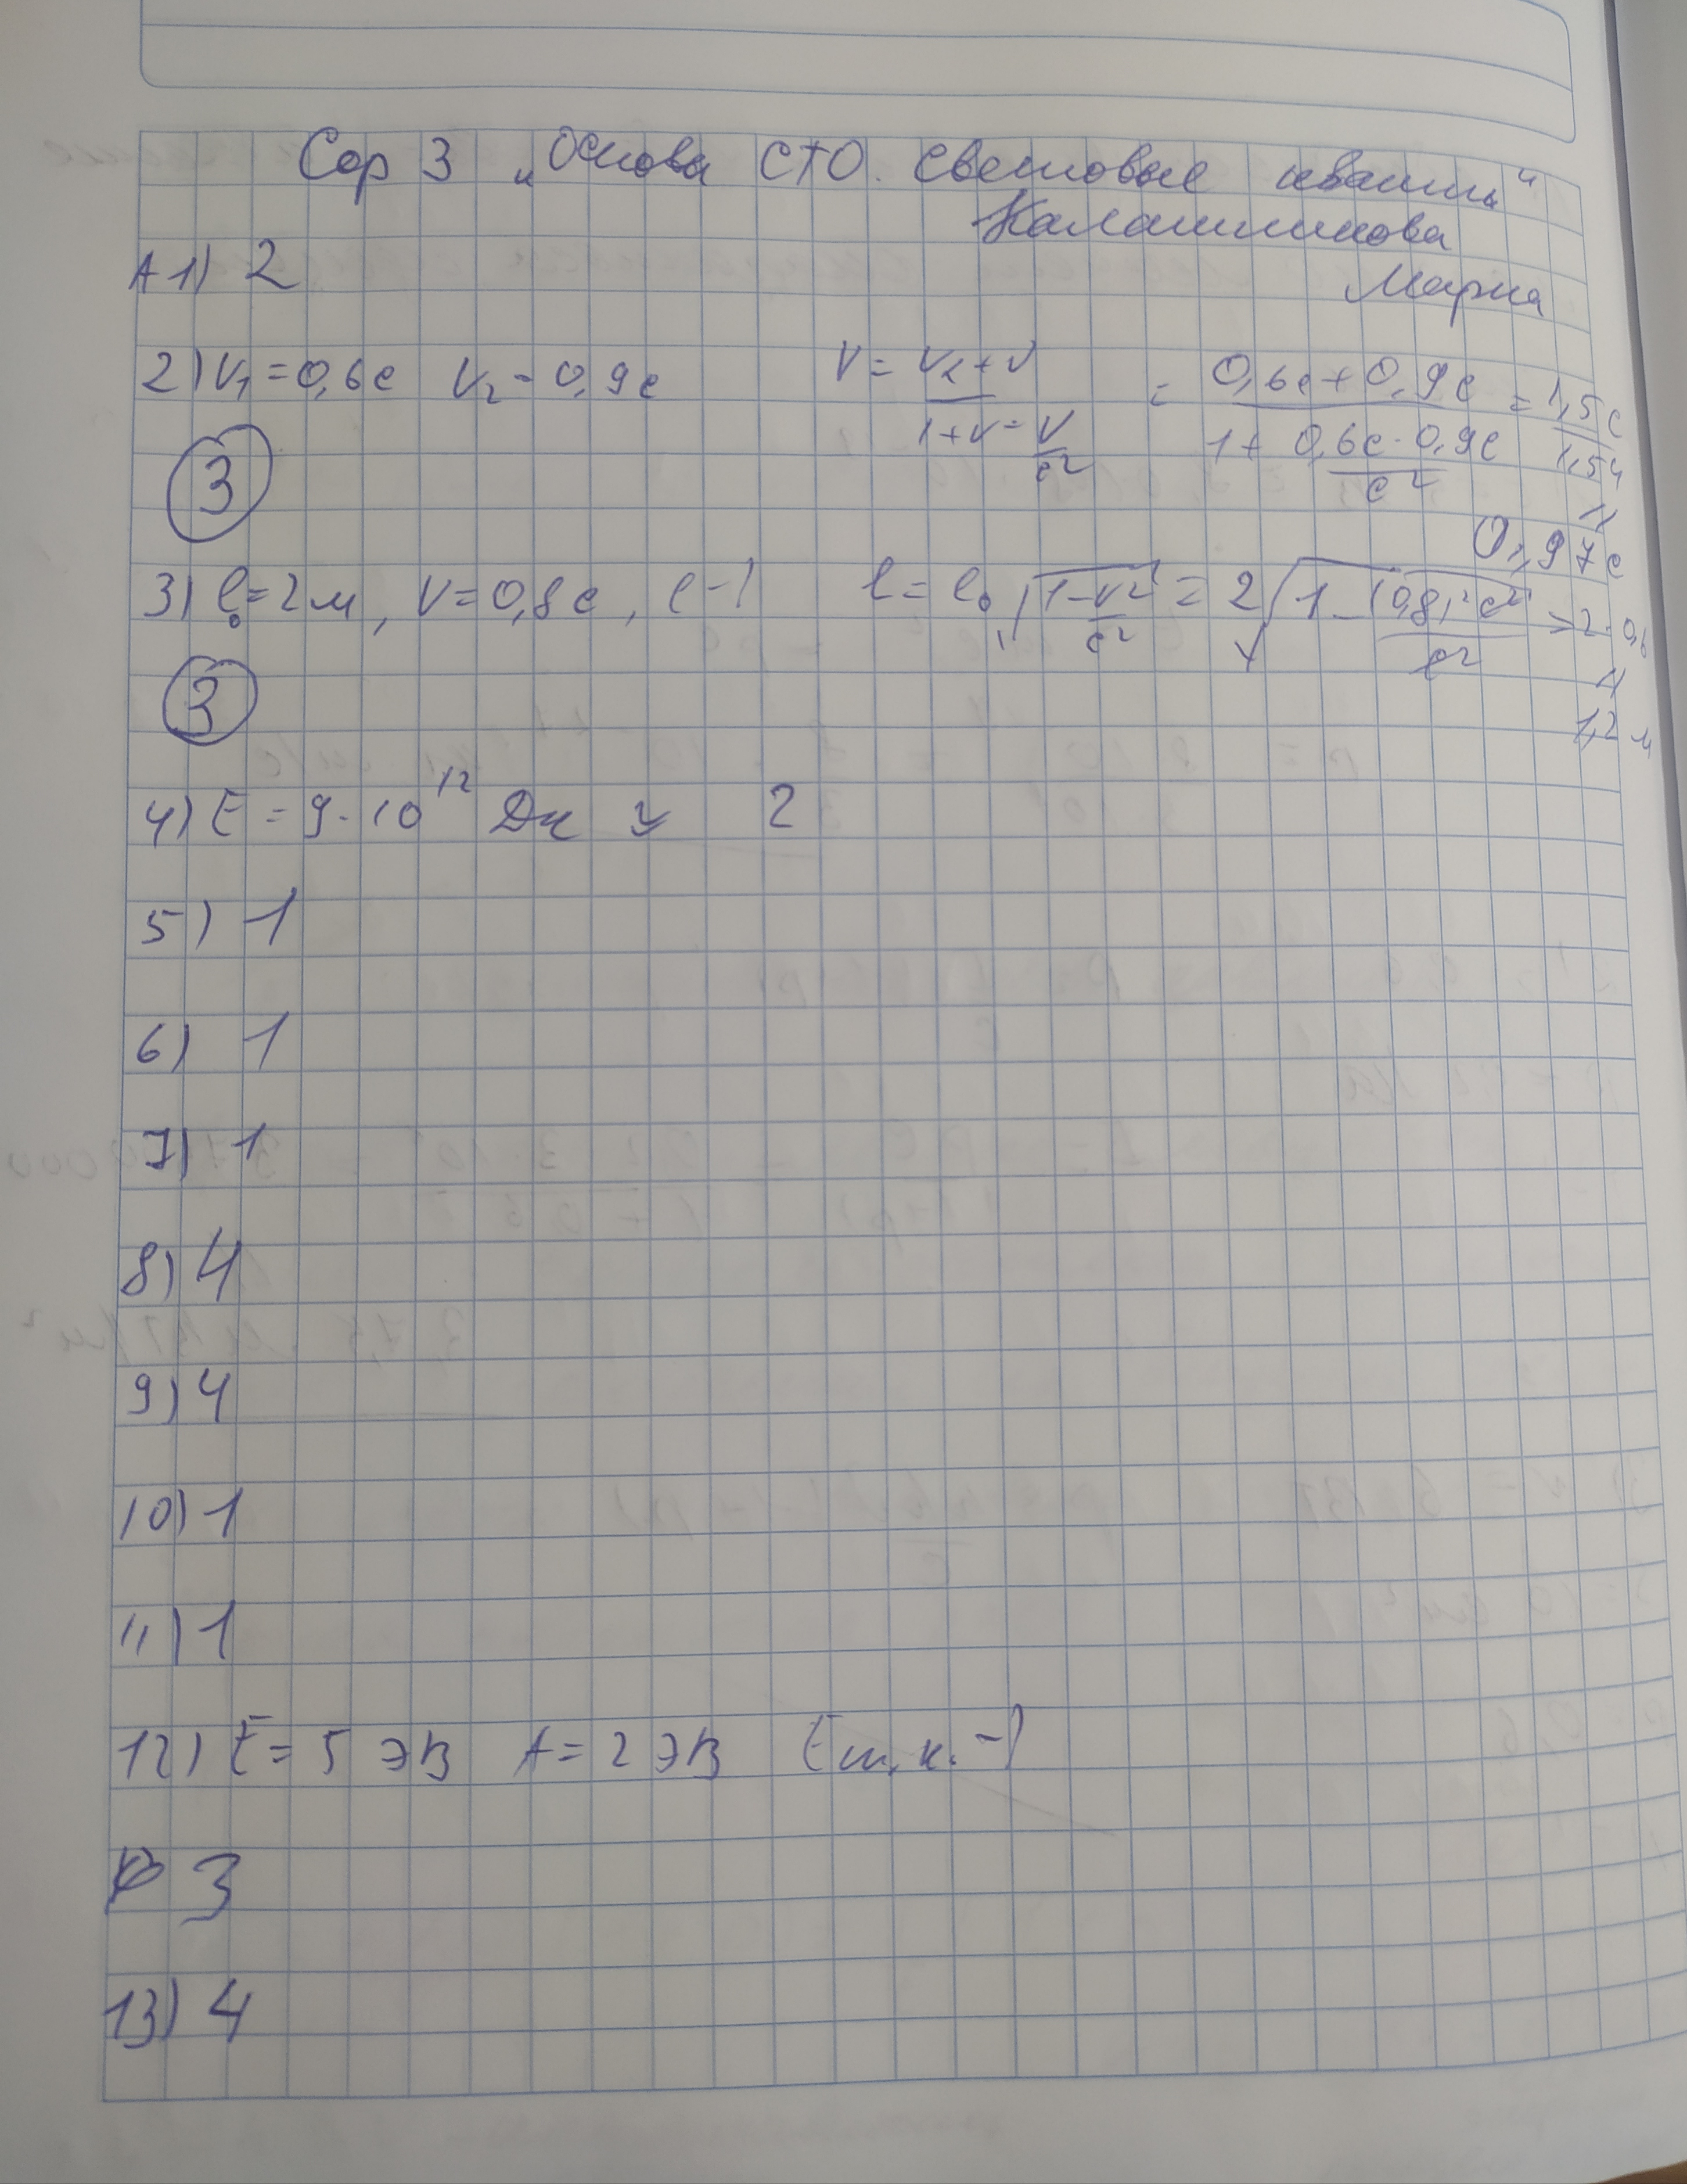 Сор 3 „Основы СТО. Световые кванты“
Калашникова
Мария
А 1) 2
2) V₁ = 0,6c V₂ - 0,9c V = V₁ + V / 1 + V = V/c² = 0,6c + 0,9c / 1 + 0,6c · 0,9c/c² = 1,5c / 1,54
0,97c
3
3) l₀ = 2 м, V = 0,8c, l - ? l = l₀ √1 - V²/c² = 2 √1 - (0,8)² c²/c² = 2 · 0,6
1,2 м
3
4) E = 9 · 10¹² Дж 2
5) 1
6) 1
7) 1
8) 4
9) 4
10) 1
11) 1
12) E = 5 эВ A = 2 эВ Eт.к. - ?
3
13) 4